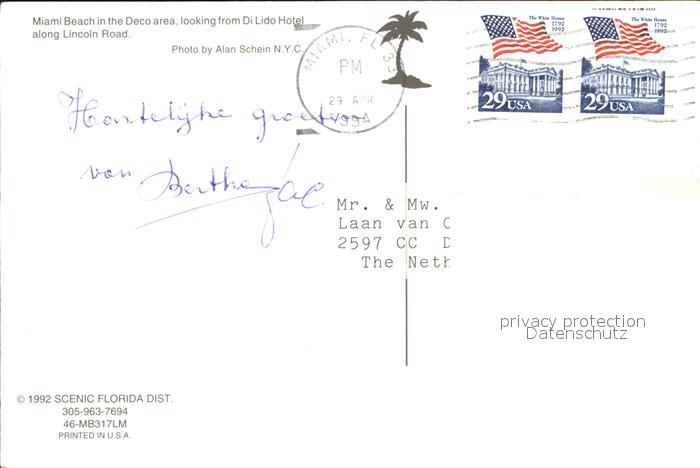 Miami Beach in the Deco area, looking from Di Lido Hotel
along Lincoln Road.
Photo by Alan Schein N.Y.C.
MIAMI, FL 33
PM
29 APR
1994
The White House
1792
1992
29 USA
The White House
1792
1992
29 USA
Hartelijke groeten
van Berthe
Mr. & Mw.
Laan van C
2597 CC D
The Neth
privacy protection
Datenschutz
© 1992 SCENIC FLORIDA DIST.
305-963-7694
46-MB317LM
PRINTED IN U.S.A.